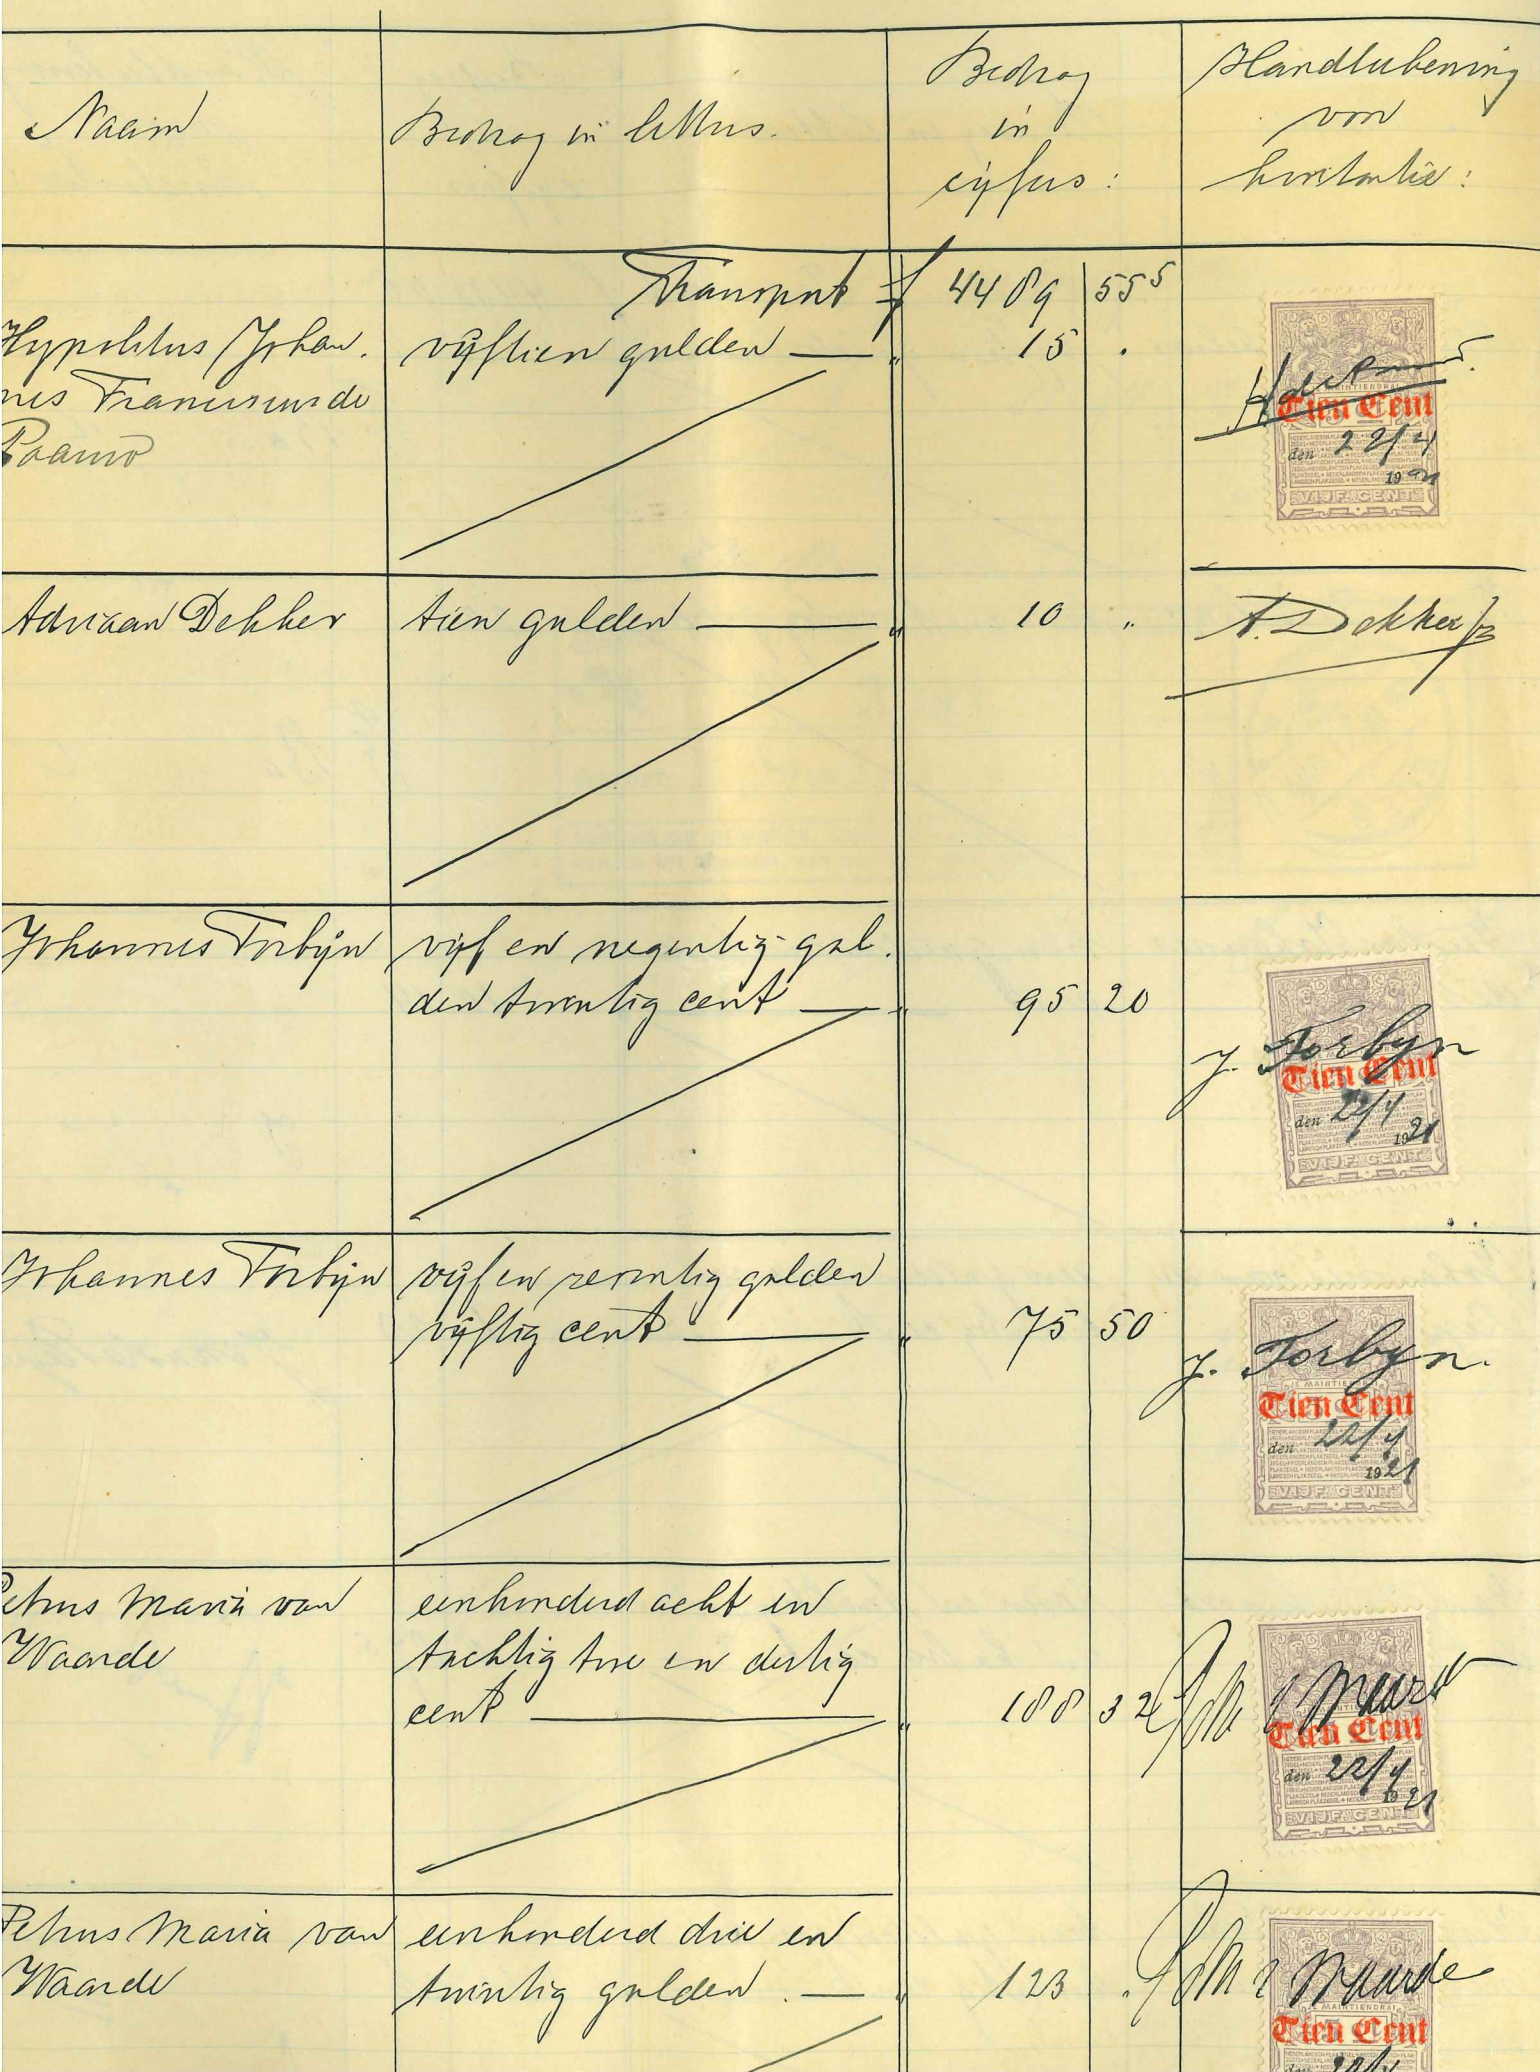 Naam
Bedrag in letters.
Bedrag
in
cijfers:
Handteekening
voor
kwitantie:
Transport f 4489 55⁵
Hypolitus Johan.
nes Franciscus de
Paauw
vijftien gulden — " 15 .
Tien Cent
den 22/4
1921
VIJF CENT
Adriaan Dekker
tien gulden — " 10 "
A. Dekker
Johannes Torbijn
vijf en negentig gul.
den twintig cent — " 95 20
J. Torbyn
Tien Cent
den 22/4
1921
VIJF CENT
Johannes Torbijn
vijf en zeventig gulden
vijftig cent — " 75 50
J. Torbyn.
JE MAINTIENDRAI
Tien Cent
den 22/4
1921
VIJF CENT
Petrus Maria van
Waarde
eenhonderd acht en
tachtig twee en dertig
cent — " 188 32
Tien Cent
den 22/4
1921
VIJF CENT
Petrus Maria van
Waarde
eenhonderd drie en
twintig gulden. — " 123 .
Waarde
MAINTIENDRAI
Tien Cent